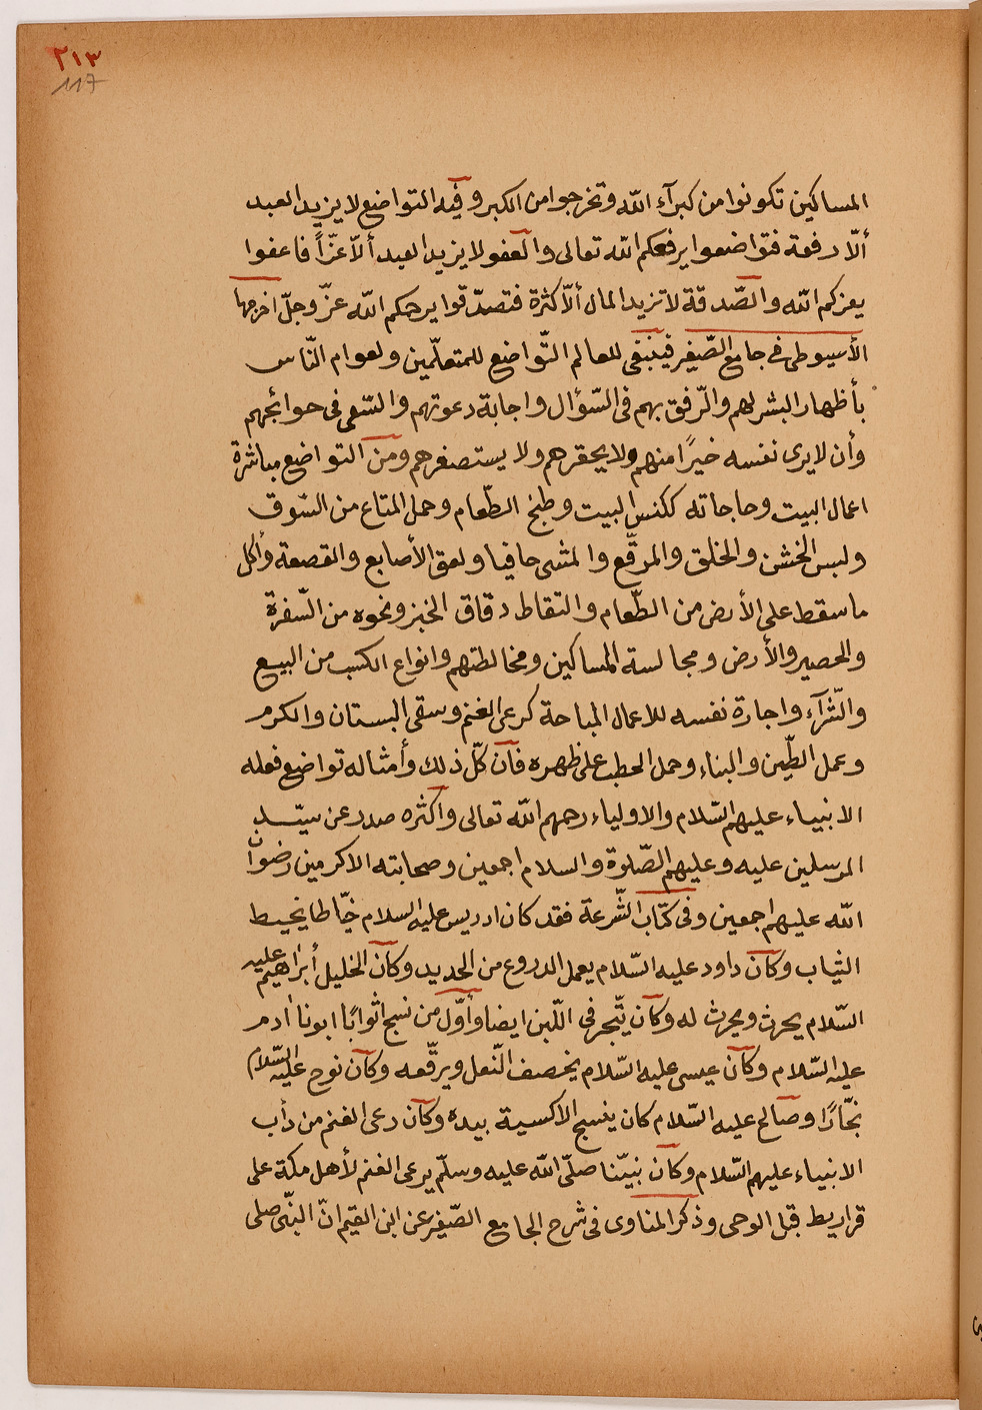 ٢١٣
117
المساكين تكونوا من كبرآء الله وتخرجوا من الكبر وفيه التواضع لا يزيد العبد
ألّا رفعة فتواضعوا يرفعكم الله تعالى والعفو لا يزيد العبد ألاّ عزّاً فاعفوا
يعزكم الله والصّدقة لا تزيد المال ألاّ كثرة فتصدّقوا يرحمكم الله عزّ وجلّ اخرجها
الأسيوطى فى جامع الصّغير فينبغى للعالم التّواضع للمتعلّمين ولعوام النّاس
بأظهار البشر لهم والرّفق بهم فى السّؤال واجابة دعوتهم والسّعى فى حوائجهم
وأن لا يرى نفسه خيرًا منهم ولا يحقرهم ولا يستصغرهم ومن التواضع مباشرة
اعمال البيت وحاجاته ككنس البيت وطبخ الطّعام وحمل المتاع من السّوق
ولبس الخشن والخلق والمرقّع والمشى حافيا ولعق الأصابع والقصعة وأكل
ما سقط على الأرض من الطّعام والتقاط دقاق الخبز ونحوه من السّفرة
والحصير والأرض ومجالسة المساكين ومخالطتهم وانواع الكسب من البيع
والشّرآء واجارة نفسه للاعمال المباحة كرعى الغنم وسقى البستان والكرم
وعمل الطّين والبناء وحمل الحطب على ظهره فأن كلّ ذلك وأمثاله تواضع فعله
الانبياء عليهم السّلام والاولياء رحمهم الله تعالى واكثره صدر عن سيّد
المرسلين عليه وعليهم الصّلوة والسلام اجمعين وصحابته الاكرمين رضوان
الله عليهم اجمعين وفى كتاب الشّرعة فقد كان ادريس عليه السلام خيّاطا يخيط
الثياب وكان داود عليه السّلام يعمل الدروع من الحديد وكان الخليل أبراهيم عليه
السّلام يحرث ويحرث له وكان يتّجر فى اللّبن ايضا وأوّل من نسج اثوابًا ابونا أدم
عليه السّلام وكان عيسى عليه السّلام يخصف النّعل ويرقّعه وكان نوح عليه السّلام
نجّارًا وصالح عليه السّلام كان ينسج الاكسية بيده وكان رعى الغنم من دأب
الانبياء عليهم السّلام وكان نبيّنا صلّى الله عليه وسلّم يرعى الغنم لأهل مكة على
قراريط قبل الوحى وذكر المناوى فى شرح الجامع الصّغير عن ابن القيم انّ النبّى صلى